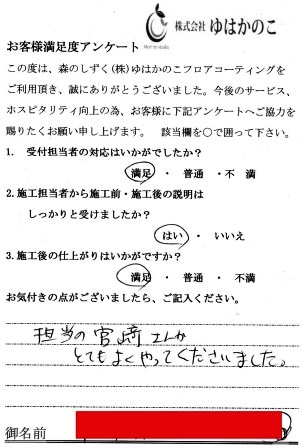 株式会社 ゆはかのこ
Mori no sizuku
お客様満足度アンケート
この度は、森のしずく(株)ゆはかのこフロアコーティングを
ご利用頂き、誠にありがとうございました。今後のサービス、
ホスピタリティ向上の為、お客様に下記アンケートへご協力を
賜りたくお願い申し上げます。 該当欄を○で囲って下さい。
1. 受付担当者の対応はいかがでしたか?
満足 ・ 普通 ・ 不満
2.施工担当者から施工前・施工後の説明は
しっかりと受けましたか?
はい ・ いいえ
3.施工後の仕上がりはいかがですか?
満足 ・ 普通 ・ 不満
お気付きの点がございましたら、ご記入ください。
担当の宮崎さんが
とてもよくやってくださいました。
御名前